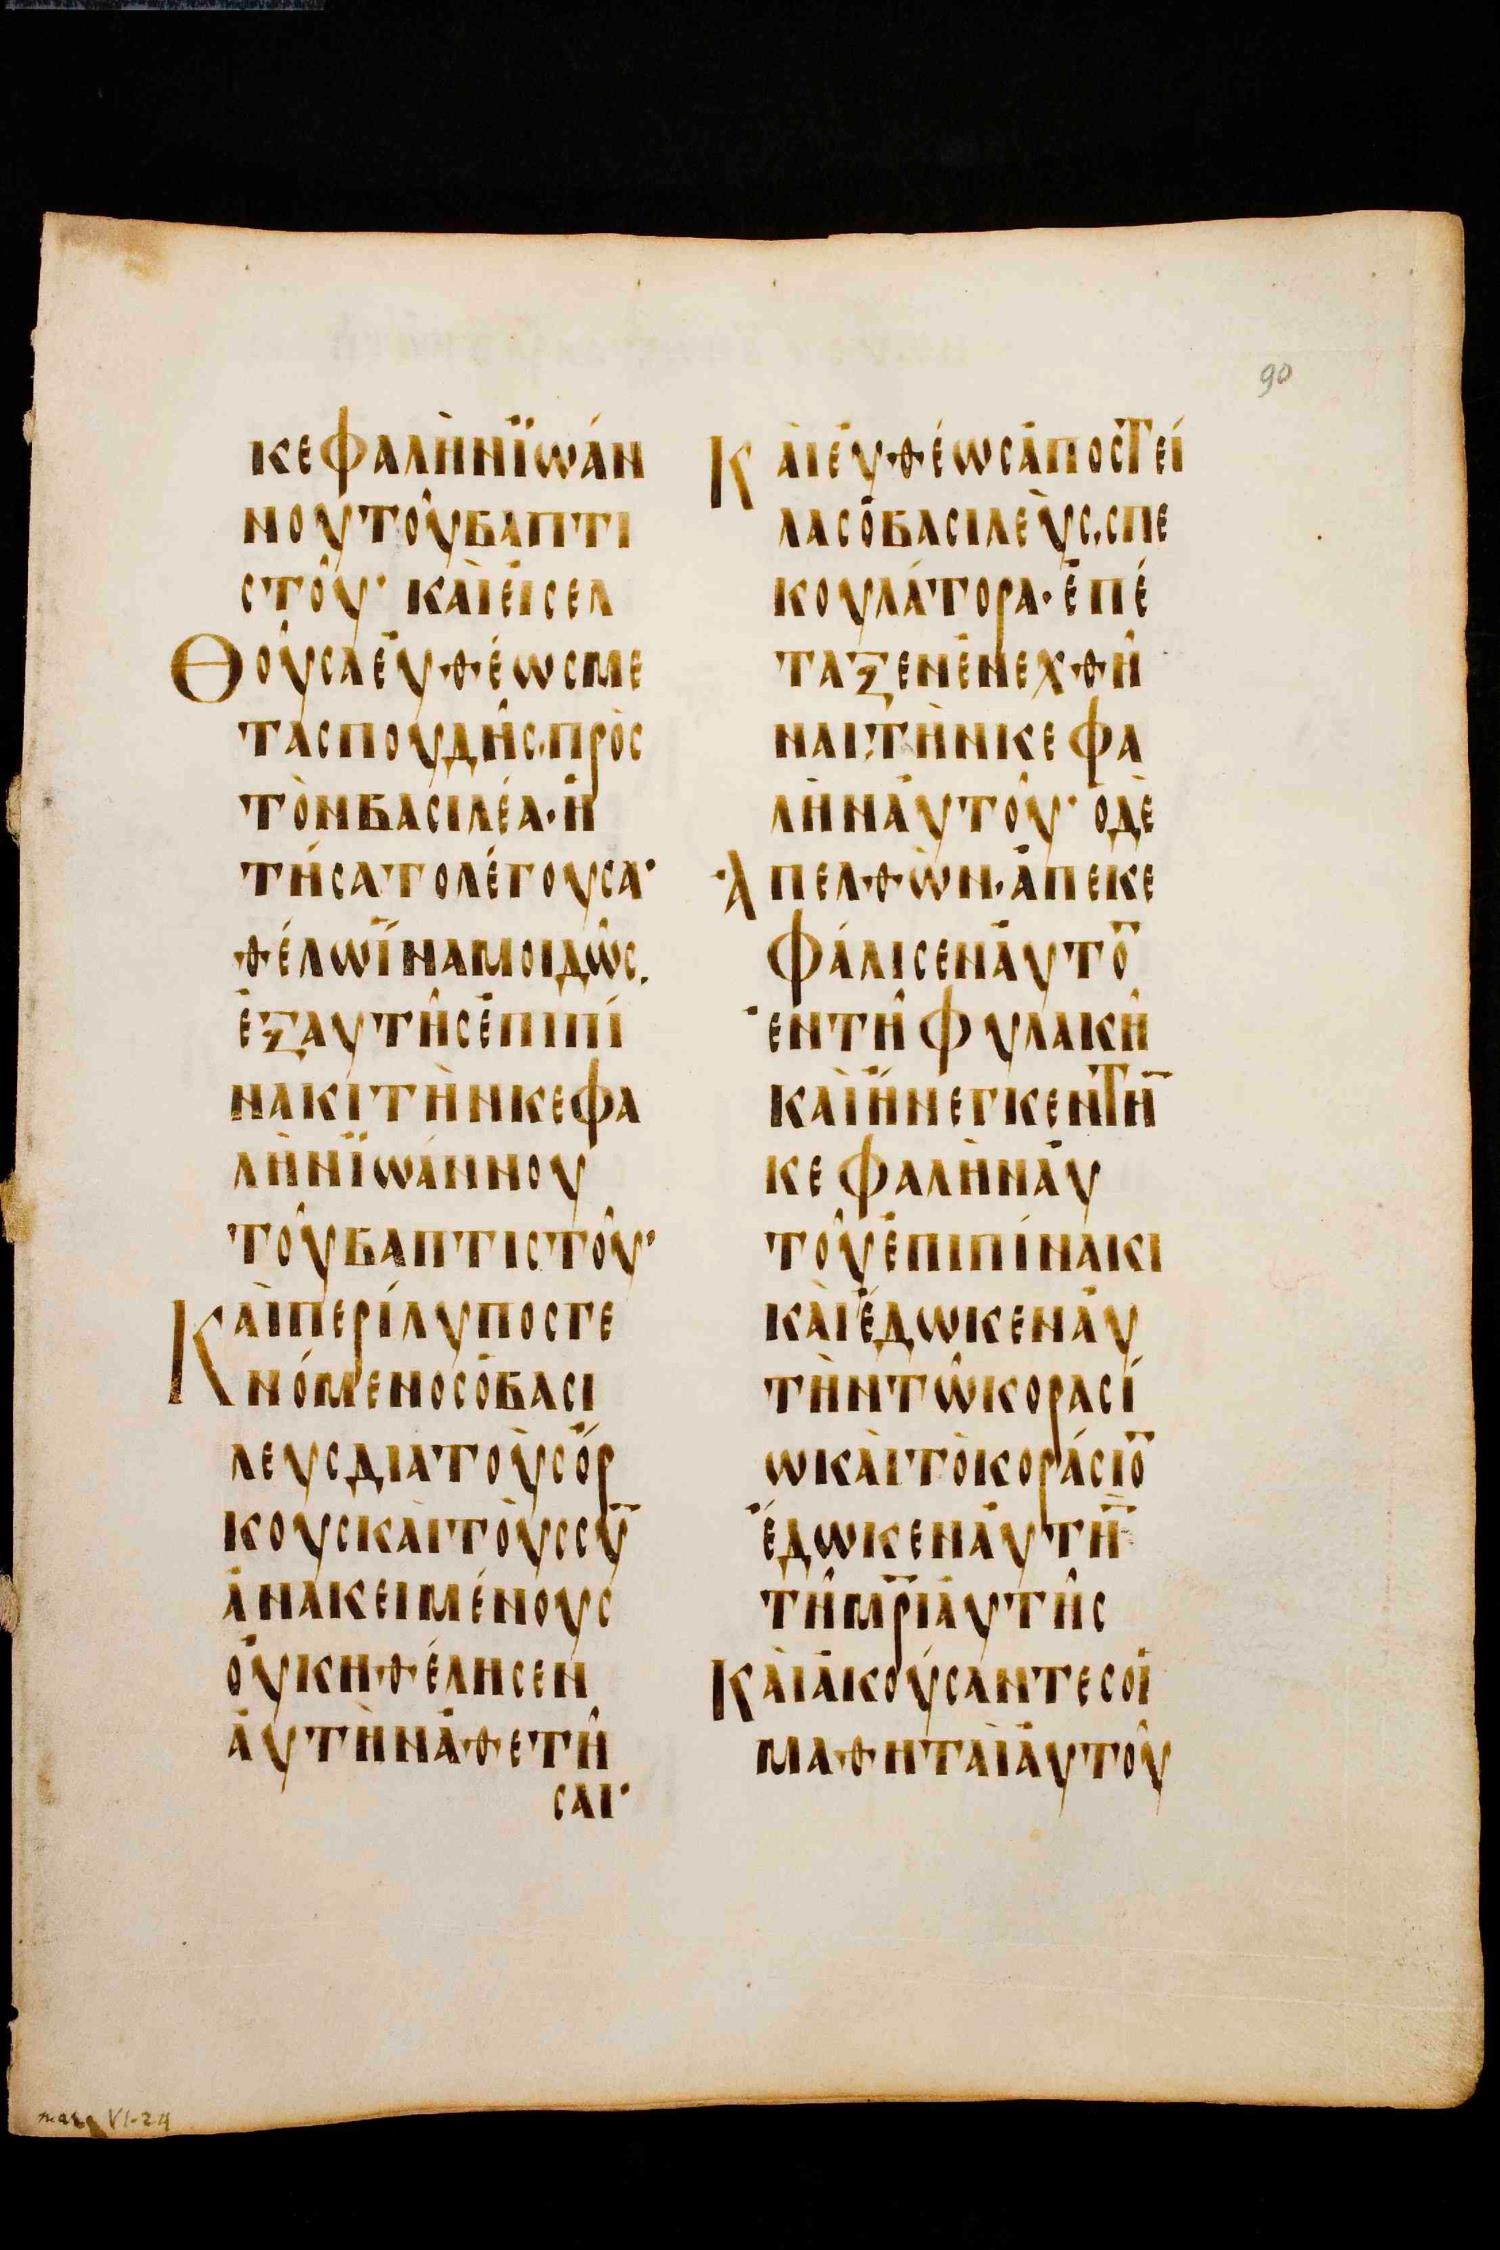 90
κεφαλὴνϊωάν
νουτοῦβαπτι
στοῦ· καὶεἰσελ
θοῦσαεὐθέωσμε
τασπουδῆς,πρὸσ
τὸνβασιλέα·ἠ
τήσατολέγουσα·
θέλωἵναμοιδῶς.
ἐξαυτῆσἐπιπί
νακιτὴνκεφα
λὴνϊωάννου
τοῦβαπτιστοῦ·
καὶπερίλυποσγε
νόμενοσὁβασι
λευσδιατοὺσὅρ
κουσκαὶτοὺσσῡ
ἀνακειμένουσ
οὐκηθέλησεν
ἀυτὴνἀθετῆ
σαι·
Καὶεὐθέωσἀποστεί
λασὁβασιλεὺς,σπε
κουλάτορα·ἐπέ
ταξενἐνεχθῆ
ναιτὴνκεφα
λὴνἀυτοῦ· ὁδὲ
ἀπελθὼν·ἀπεκε
φάλισενἀυτο̄
ἐντῆφυλακῆ
καὶἤνεγκεντη̄
κεφαλὴνἀυ
τοῦἐπιπίνακι
καὶἔδωκενἀυ
τὴντῶκορασί
ωκαὶτὸκοράσιο̄
ἔδωκενἀυτη̄
τῆμρ̄ιἀυτῆσ
Καὶἀκούσαντεσοἱ
μαθηταὶἀυτοῦ
marc VI-24